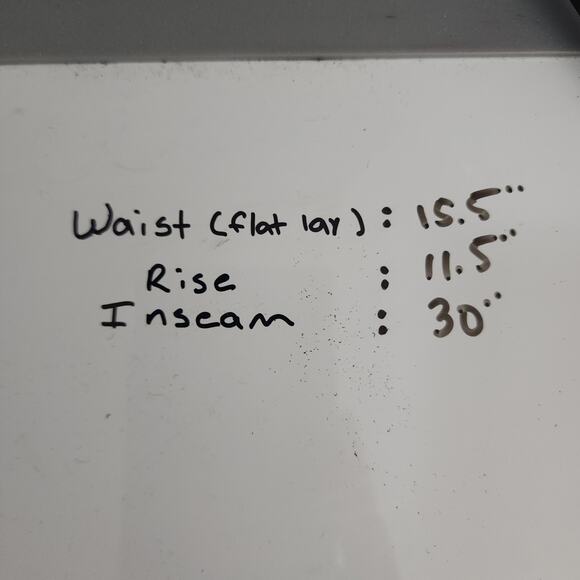 Waist (flat lay) : 15.5"
Rise : 11.5"
Inseam : 30"